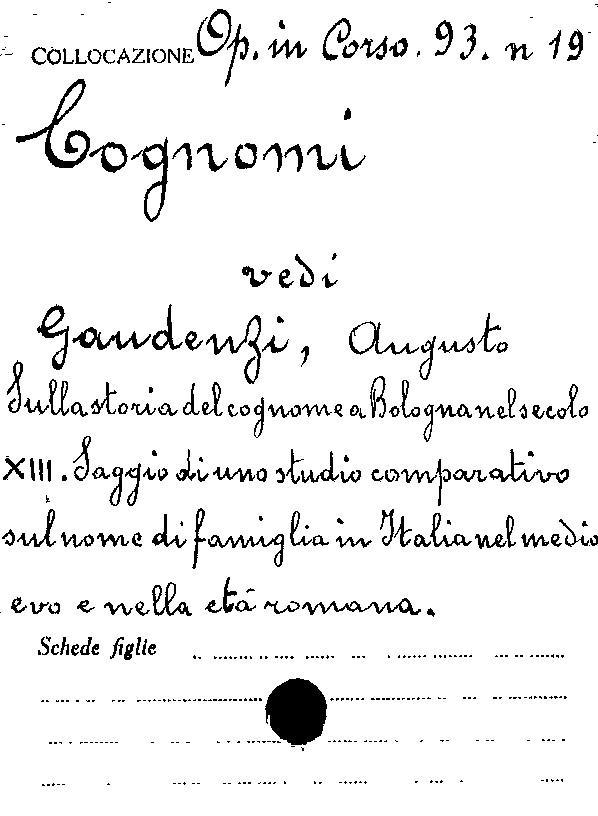 COLLOCAZIONE Op. in Corso. 93. n 19
Cognomi
vedi
Gaudenzi, Augusto
Sulla storia del cognome a Bologna nel secolo
XIII. Saggio di uno studio comparativo
sul nome di famiglia in Italia nel medio
evo e nella età romana.
Schede figlie